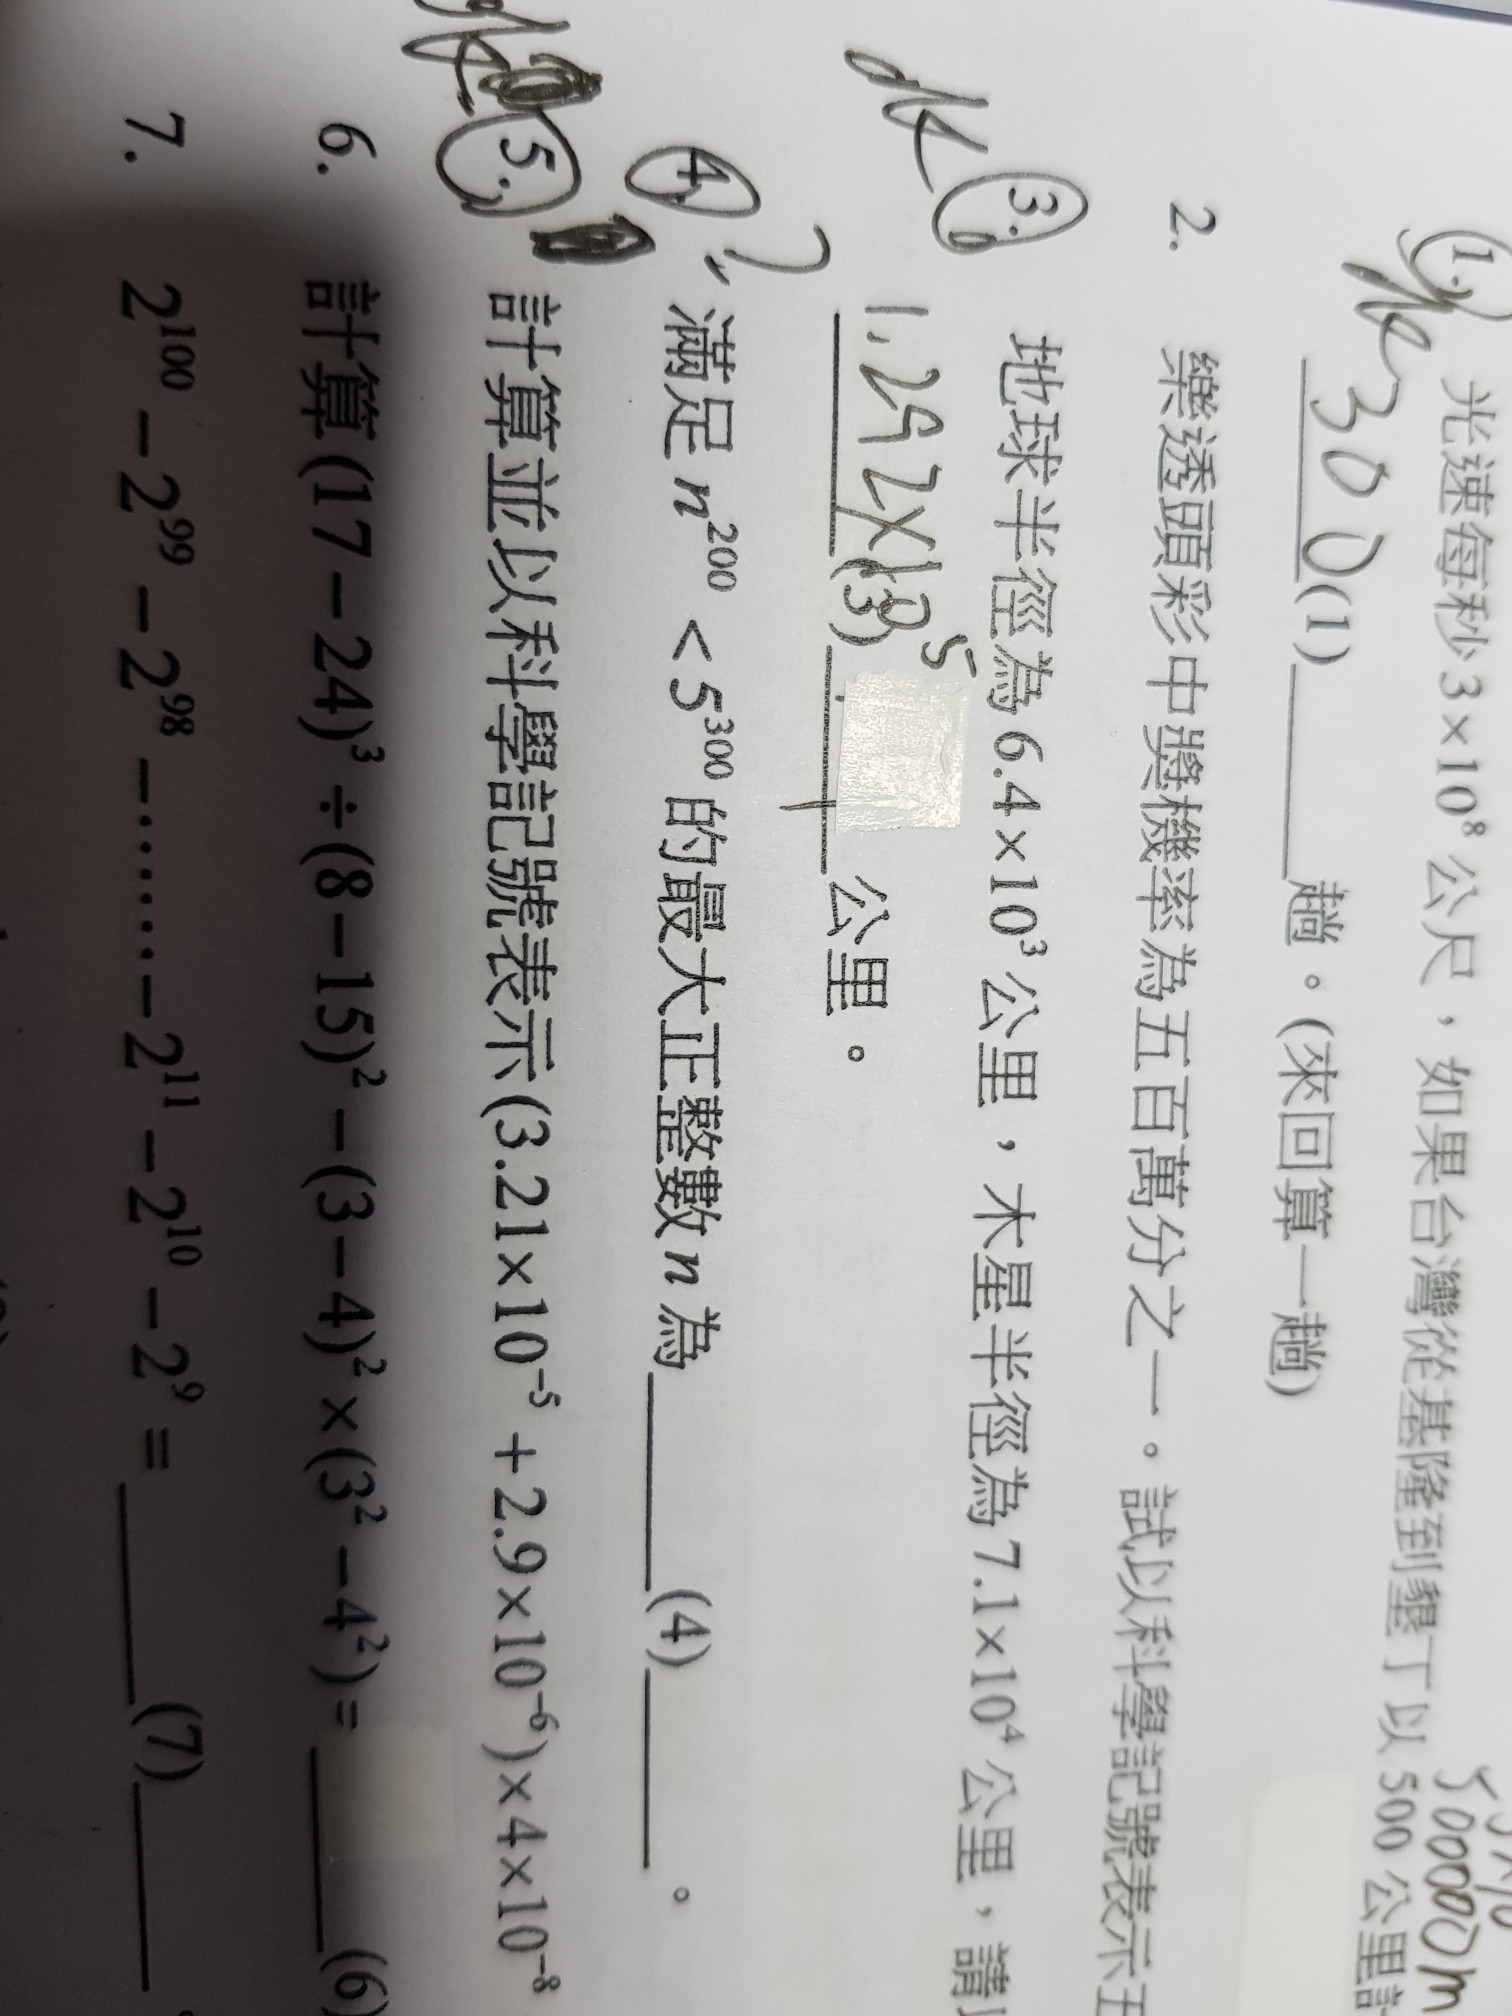 5000000m
1. 光速每秒3×10⁸公尺，如果台灣從基隆到墾丁以500公里
300(1)______趟。(來回算一趟)
2. 樂透頭彩中獎機率為五百萬分之一。試以科學記號表示
3. 地球半徑為6.4×10³公里，木星半徑為7.1×10⁴公里，請
1.292×10⁵(3)______公里。
4. ? 滿足n²⁰⁰<5³⁰⁰的最大正整數n為______(4)______。
5. 計算並以科學記號表示(3.21×10⁻⁵+2.9×10⁻⁶)×4×10⁻⁸
6. 計算(17−24)³÷(8−15)²−(3−4)²×(3²−4²)=______(6)
7. 2¹⁰⁰−2⁹⁹−2⁹⁸−⋯⋯−2¹¹−2¹⁰−2⁹=______(7)______。